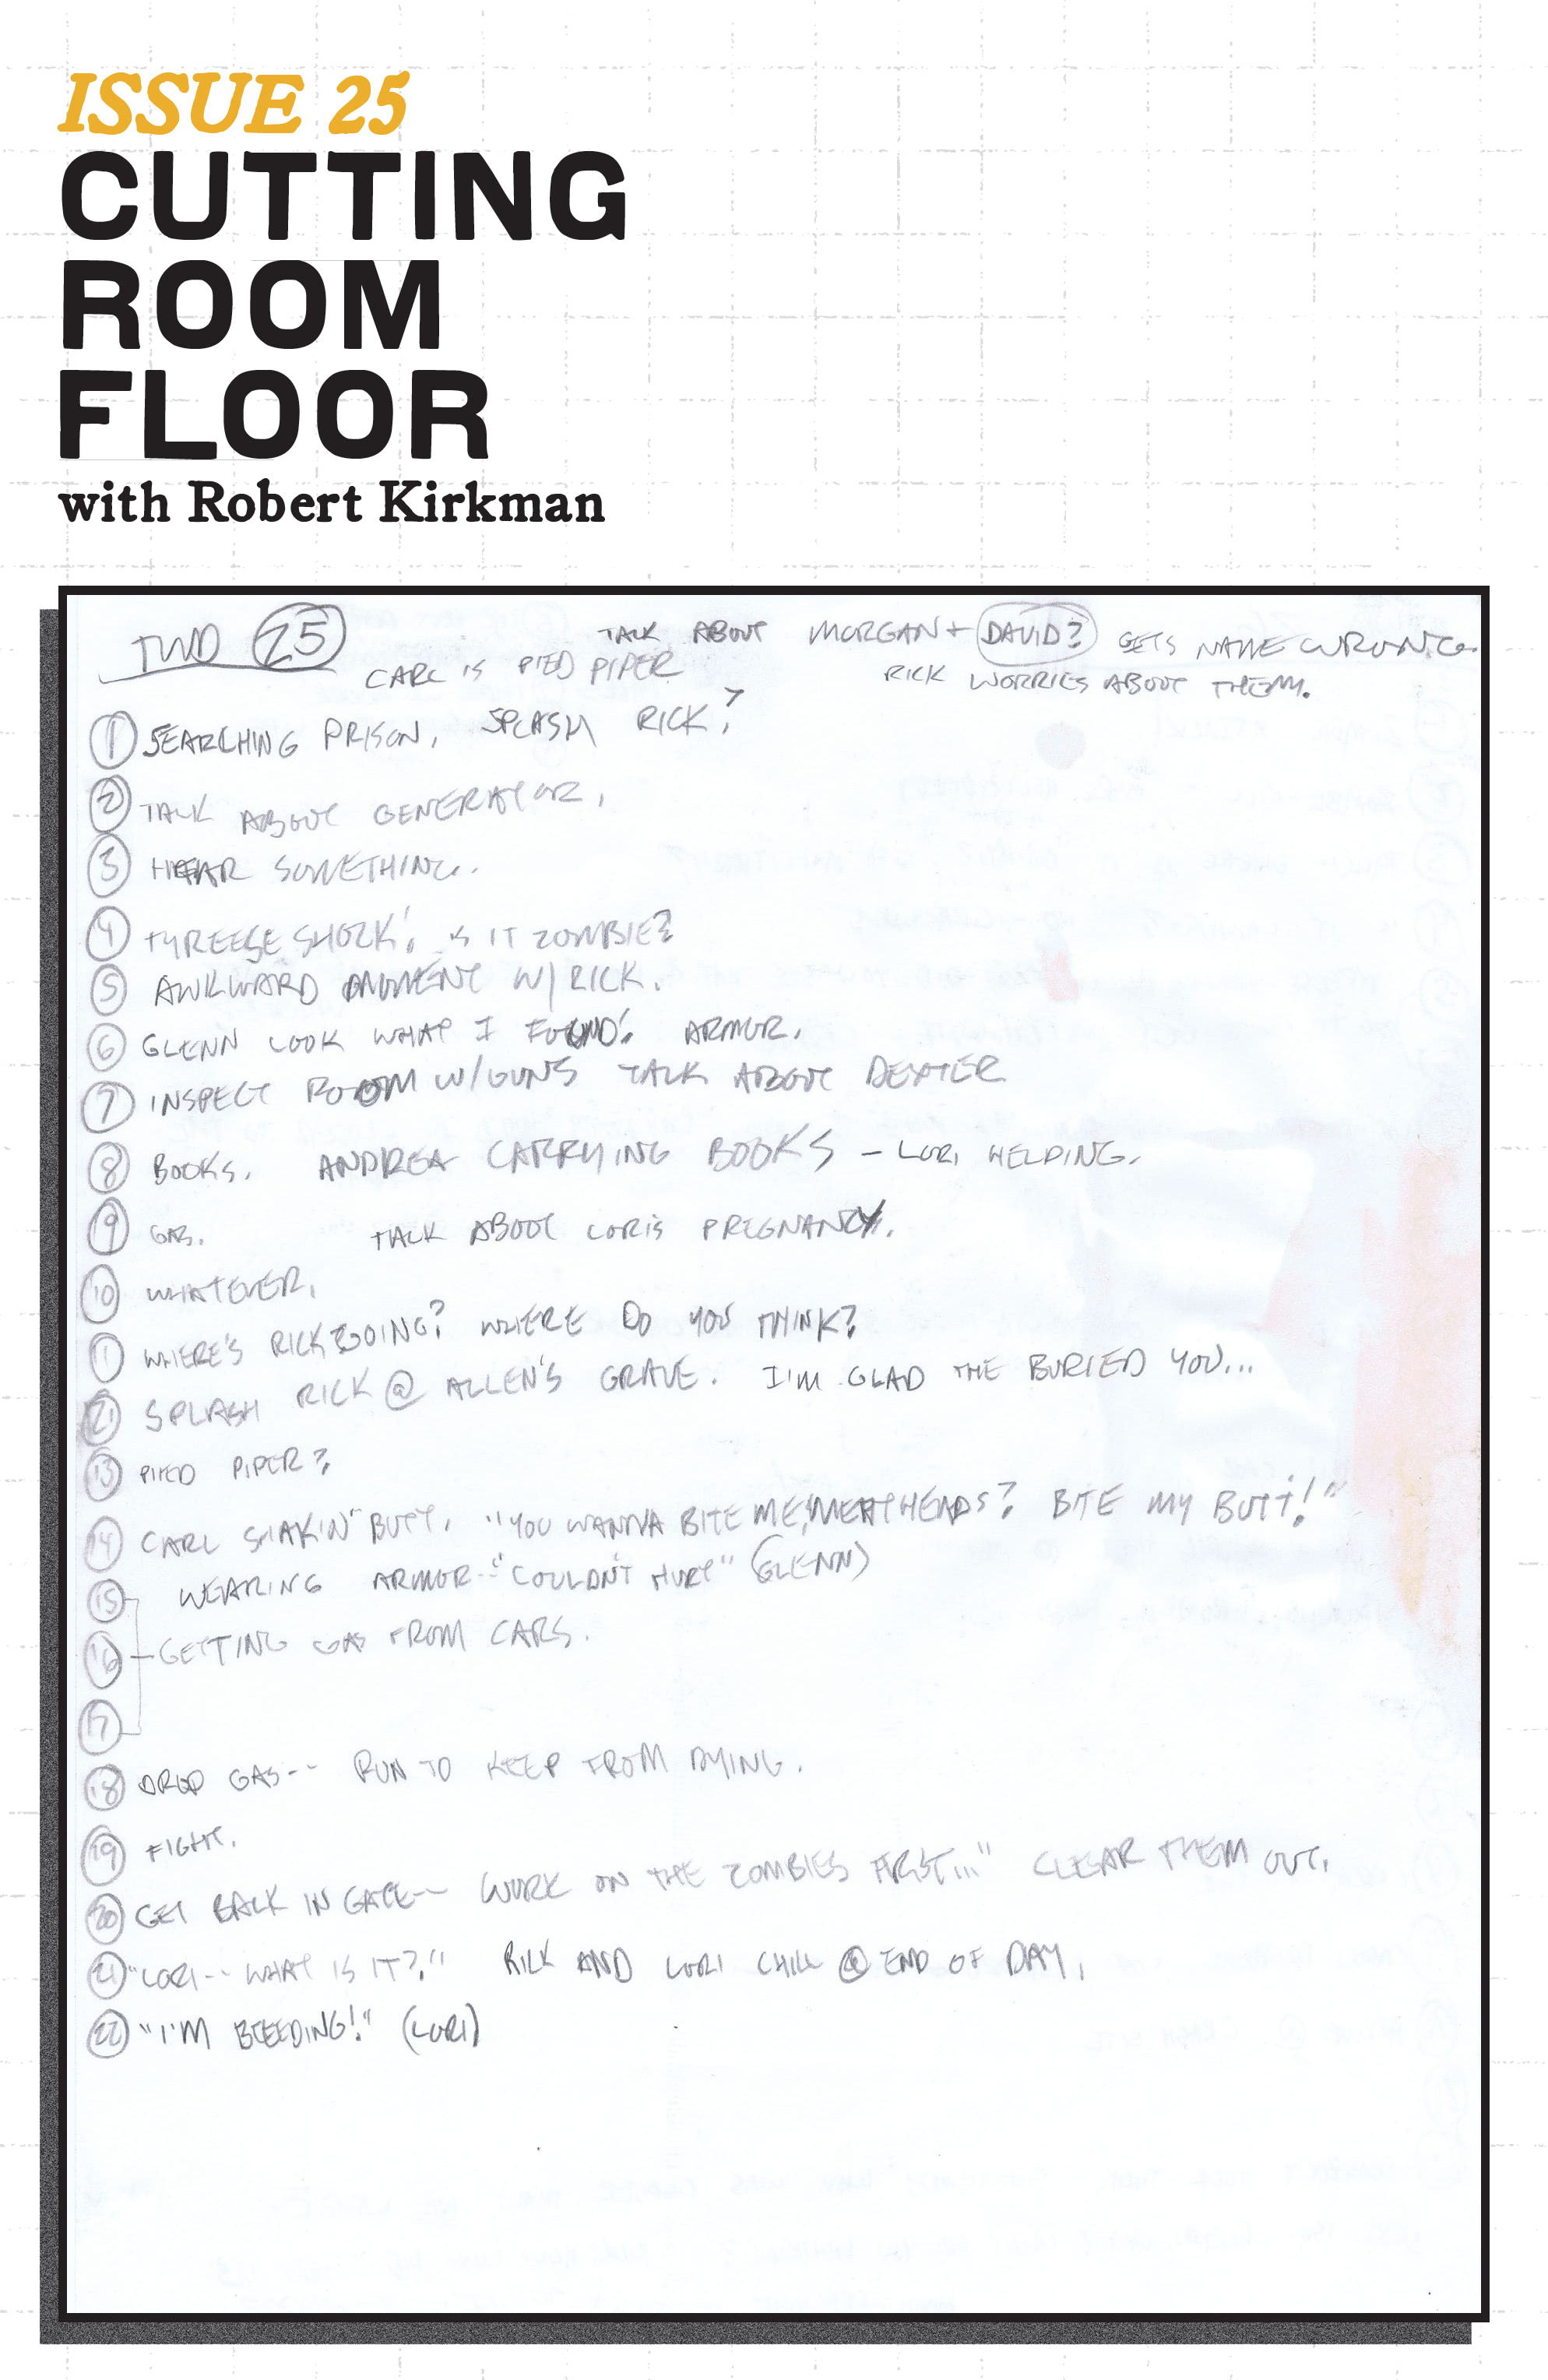 ISSUE 25
CUTTING
ROOM
FLOOR
with Robert Kirkman
TWD 25
TALK ABOUT MORGAN + DAVID? GETS NAME WRONG.
CARL IS PIED PIPER
RICK WORRIES ABOUT THEM.
1 SEARCHING PRISON, SPLASH RICK?
2 TALK ABOUT GENERATOR.
3 HEAR SOMETHING.
4 TYREESE SHOCK! IS IT ZOMBIE?
5 AWKWARD MOMENT W/ RICK.
6 GLENN LOOK WHAT I FOUND! ARMOR.
7 INSPECT ROOM W/GUNS TALK ABOUT DEXTER
8 BOOKS. ANDREA CARRYING BOOKS - LORI HELPING.
9 GAS. TALK ABOUT LORI'S PREGNANCY.
10 WHATEVER.
11 WHERE'S RICK GOING? WHERE DO YOU THINK?
12 SPLASH RICK @ ALLEN'S GRAVE. I'M GLAD THE BURIED YOU...
13 PIED PIPER?
14 CARL SHAKIN' BUTT. "YOU WANNA BITE ME, MEATHEADS? BITE MY BUTT!"
15 WEARING ARMOR-- "COULDN'T HURT" (GLENN)
16 GETTING GAS FROM CARS.
17
18 DROP GAS-- RUN TO KEEP FROM DYING.
19 FIGHT.
20 GET BACK IN GATE-- WORK ON THE ZOMBIES FIRST..." CLEAR THEM OUT.
21 "LORI-- WHAT IS IT?." RICK AND LORI CHILL @ END OF DAY.
22 "I'M BLEEDING!" (LORI)